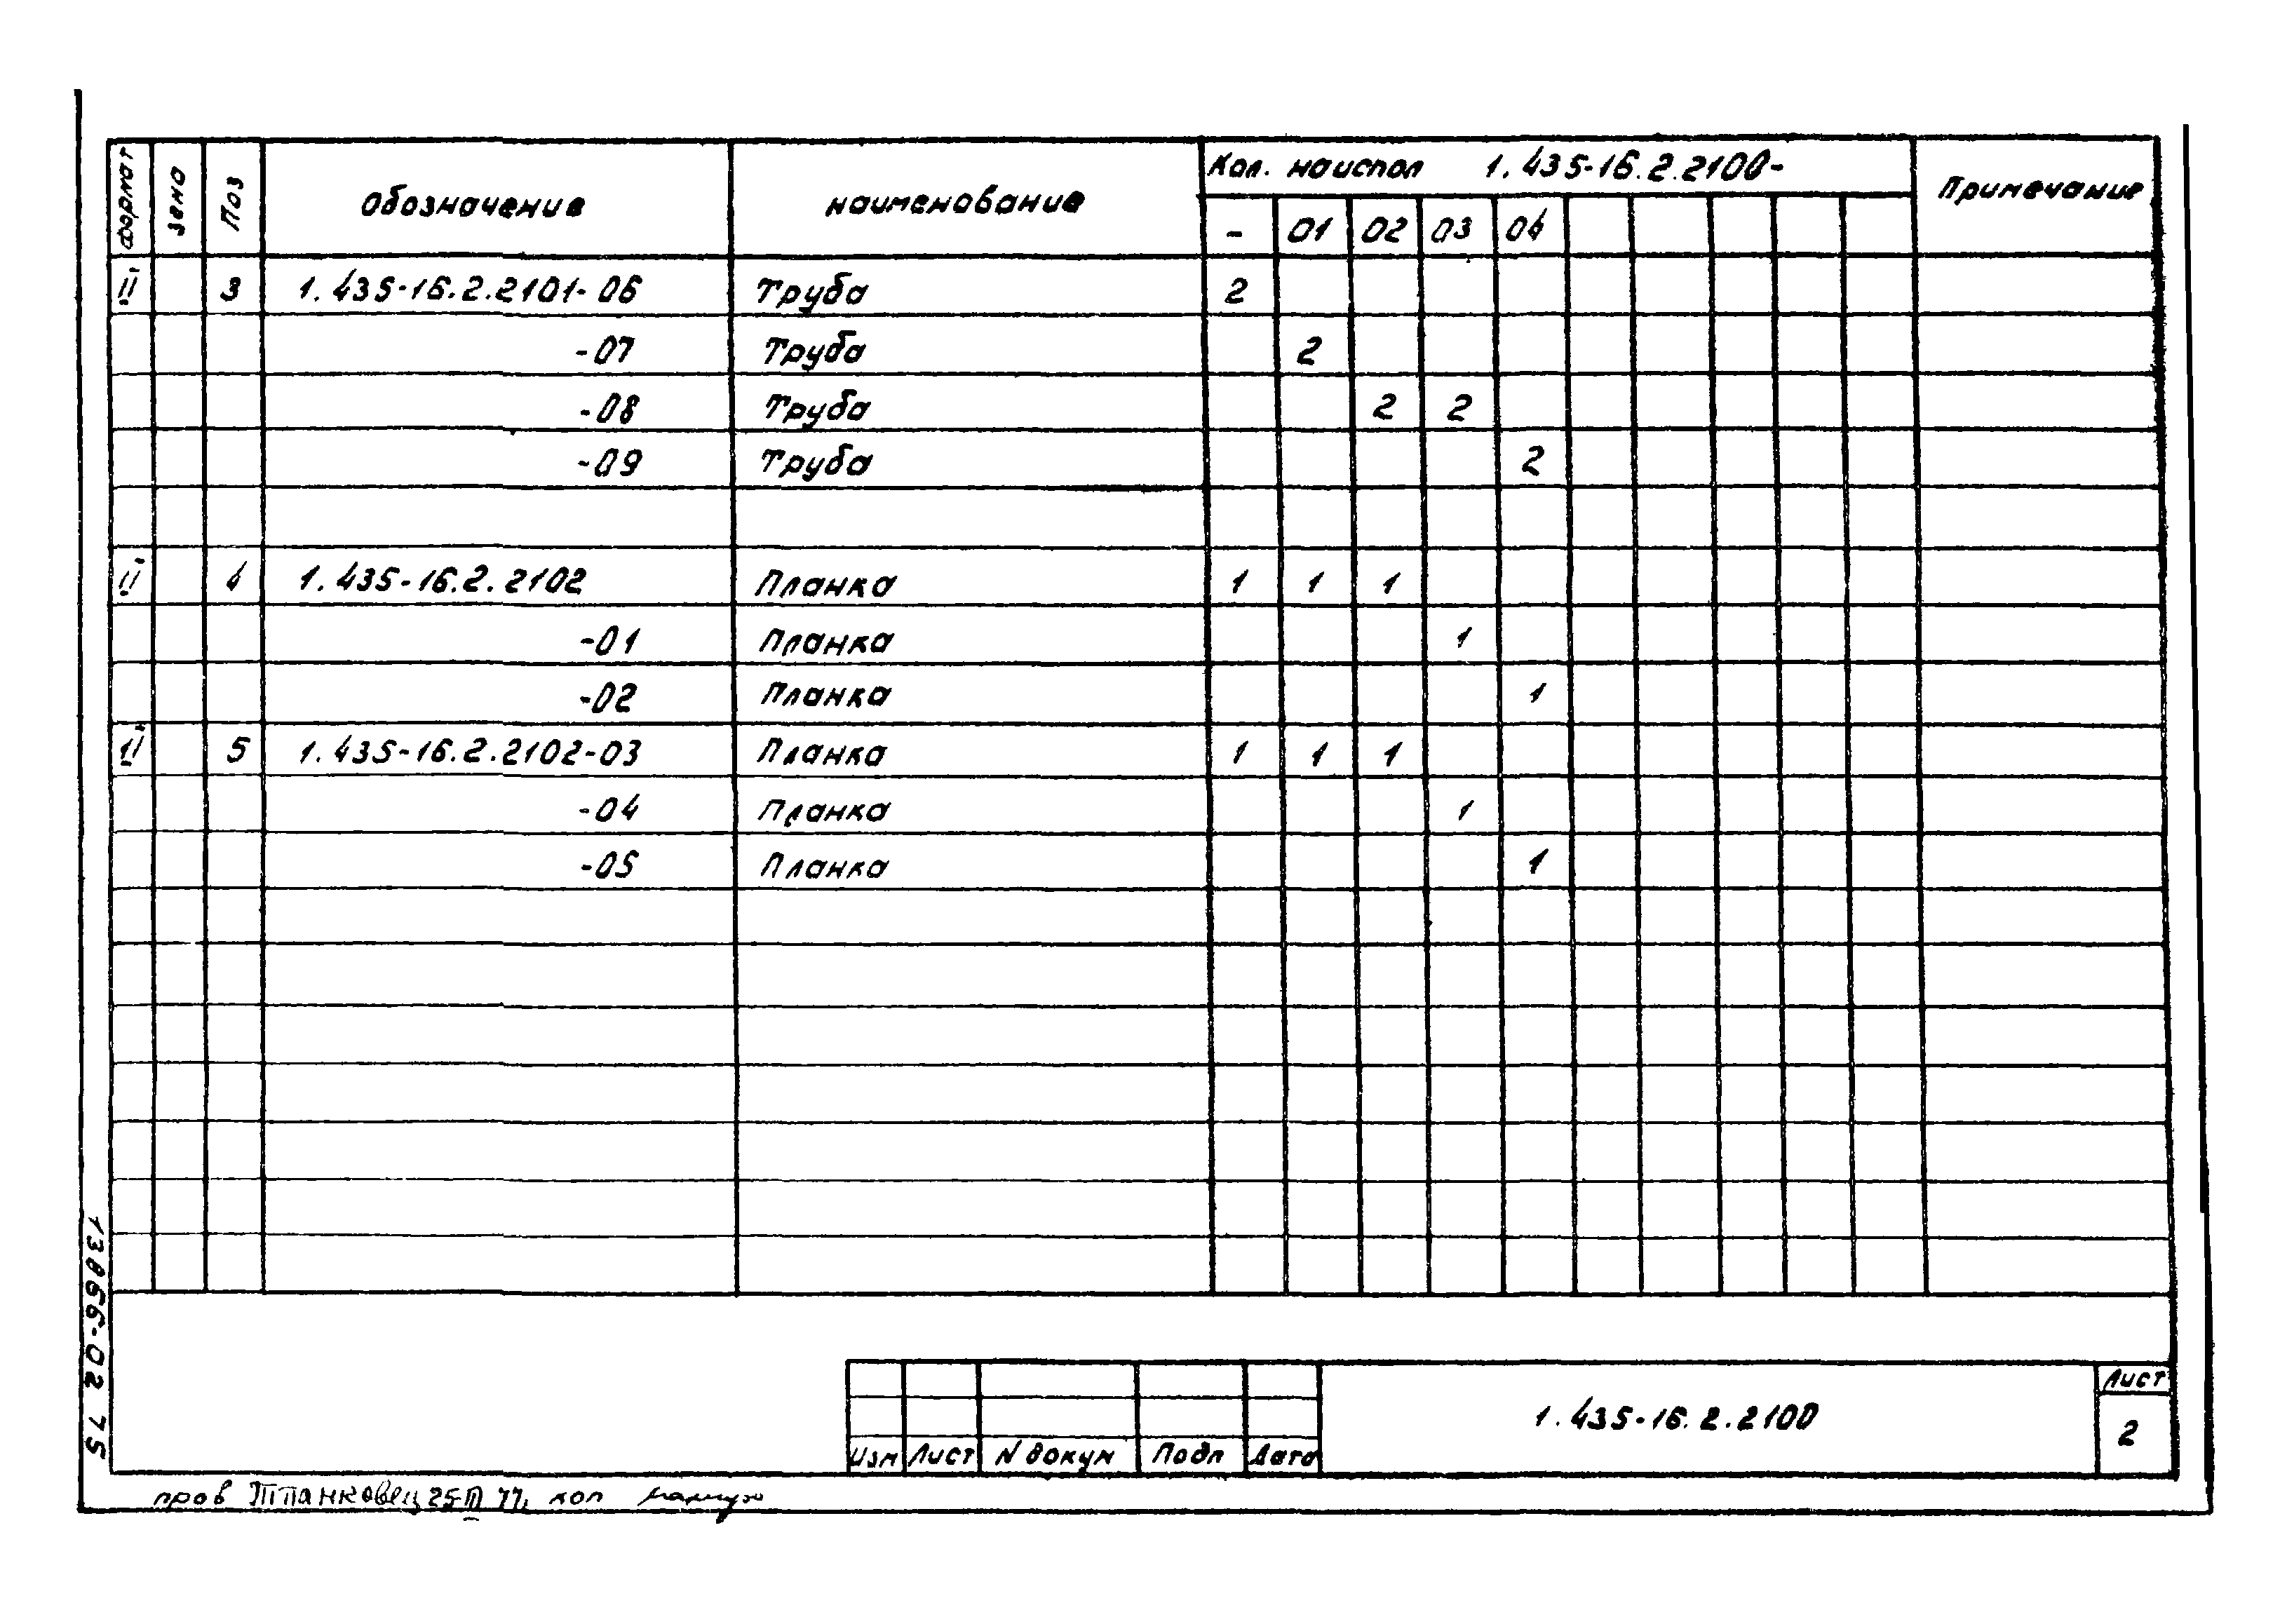 формат зона Поз Обозначение наименование Кол. на испол 1.435-16.2.2100- Примечание
- 01 02 03 04
11 3 1.435-16.2.2101-06 Труба 2
-07 Труба 2
-08 Труба 2 2
-09 Труба 2
11 4 1.435-16.2.2102 Планка 1 1 1
-01 Планка 1
-02 Планка 1
11 5 1.435-16.2.2102-03 Планка 1 1 1
-04 Планка 1
-05 Планка 1
13866-02 75
Изм Лист N докум Подп Дата
1.435-16.2.2100
Лист
2
пров 77. коп